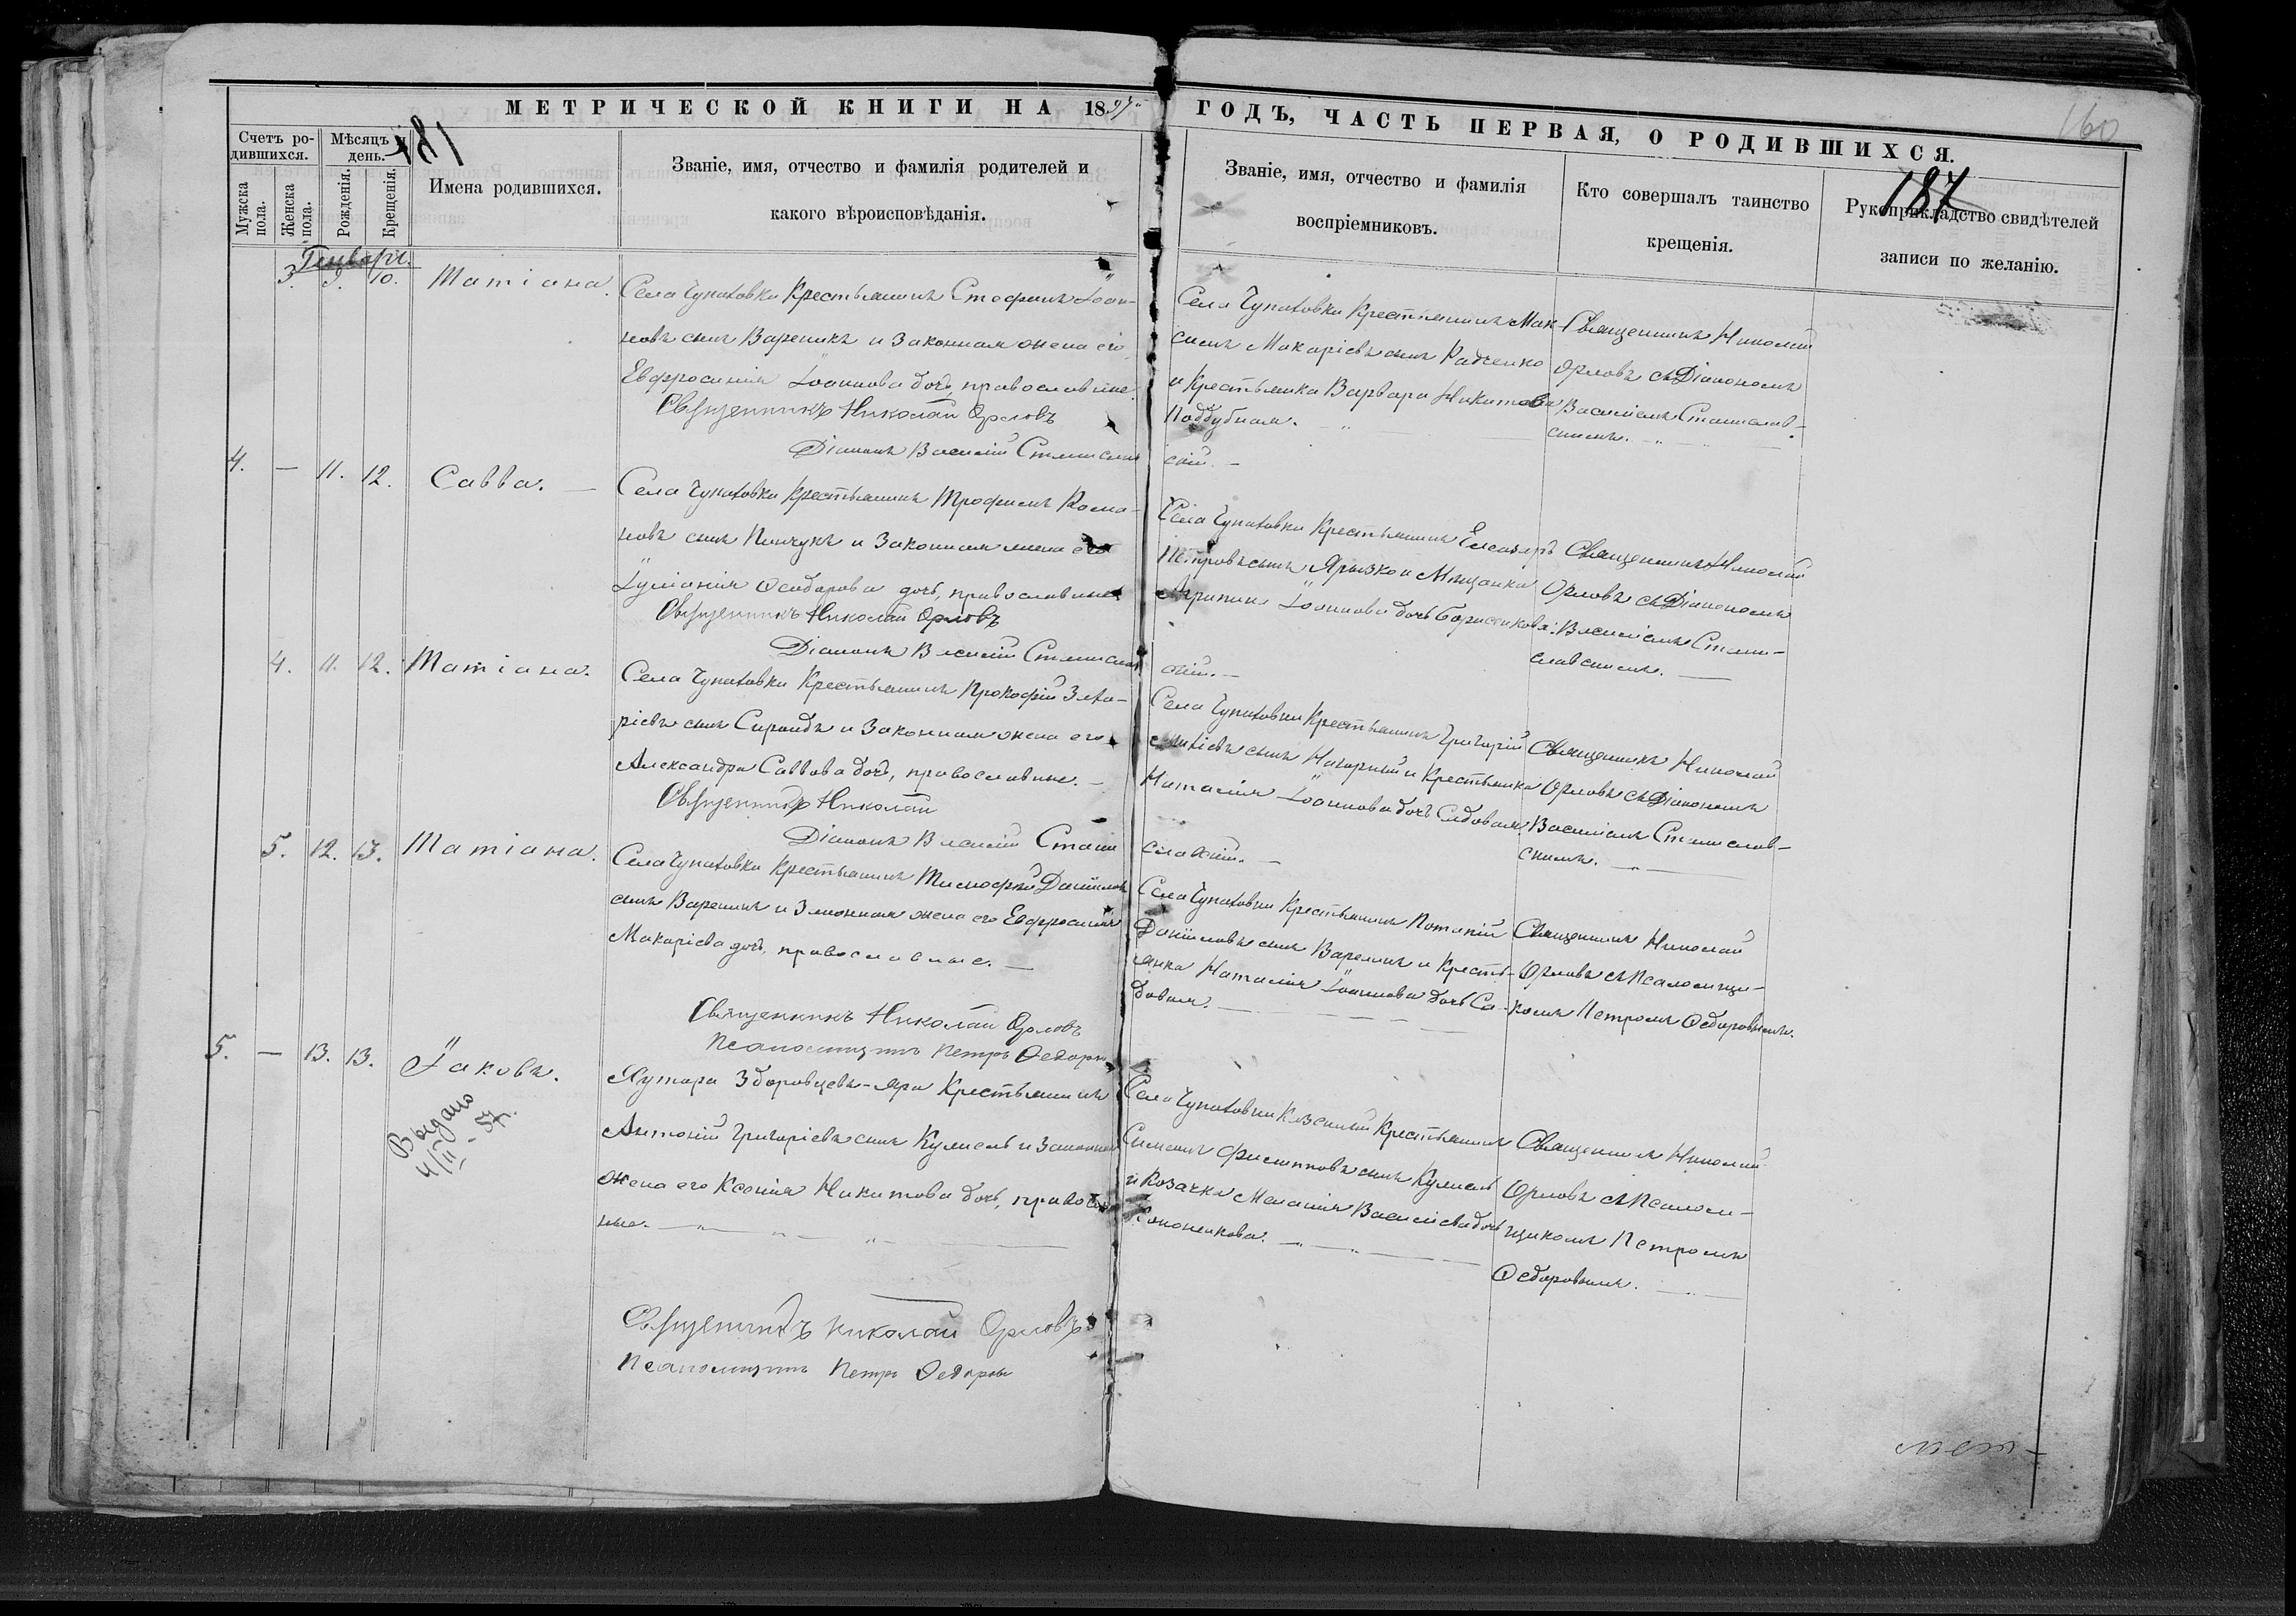 МЕТРИЧЕСКОЙ КНИГИ НА 1897 ГОДЪ, ЧАСТЬ ПЕРВАЯ, О РОДИВШИХСЯ.
160
187
Счетъ родившихся.
Мужска пола.
Женска пола.
Мѣсяцъ и день.
Рожденія.
Крещенія.
Имена родившихся.
Званіе, имя, отчество и фамилія родителей и
какого вѣроисповѣданія.
Званіе, имя, отчество и фамилія
воспріемниковъ.
Кто совершалъ таинство
крещенія.
Рукоприкладство свидѣтелей
записи по желанію.
Генварь.
3. 9. 10. Татіана.
Села Чупаховки Крестьянинъ Стефанъ Іоан-
новъ сынъ Вареникъ и законная жена его
Евфросинія Іоаннова дочь, православные.
Священникъ Николай Орловъ
Діаконъ Василій Станиславскій.
Села Чупаховки Крестьянинъ Мак-
симъ Макаріевъ сынъ Радченко
и Крестьянка Варвара Никитова
Поддубная.
Священникъ Николай
Орловъ съ Діакономъ
Василіемъ Станислав-
скимъ.
4. — 11. 12. Савва. —
Села Чупаховки Крестьянинъ Трофимъ Рома-
новъ сынъ Пинчукъ и законная жена его
Іуліанія Ѳеодорова дочь, православные
Священникъ Николай Орловъ
Діаконъ Василій Станиславскій. —
Села Чупаховки Крестьянинъ Елеазаръ
Петровъ сынъ Ярызко и Мѣщанка
Агрипина Іоаннова дочь Борисенкова.
Священникъ Николай
Орловъ съ Діакономъ
Василіемъ Стани-
славскимъ. —
4. 11. 12. Татіана.
Села Чупаховки Крестьянинъ Прокофій Заха-
ріевъ сынъ Сироидъ и законная жена его
Александра Саввова дочь, православные. —
Священникъ Николай
Діаконъ Василій Станиславскій. —
Села Чупаховки Крестьянинъ Григорій
сынъ Нагорный и Крестьянка
Наталія Іоаннова дочь Садовая.
Священникъ Николай
Орловъ съ Діакономъ
Василіемъ Станислав-
скимъ. —
5. 12. 13. Татіана.
Села Чупаховки Крестьянинъ Тимофей Даніиловъ
сынъ Вареникъ и законная жена его Евфросинія
Макаріева дочь, православные. —
Священникъ Николай Орловъ
Псаломщикъ Петръ Ѳедоровъ
Села Чупаховки Крестьянинъ Потапій
Даніиловъ сынъ Вареникъ и Кресть-
янка Наталія Іоаннова дочь Са-
довая. —
Священникъ Николай
Орловъ съ Псаломщи-
комъ Петромъ Ѳедоровымъ.
5. — 13. 13. Іаковъ.
Выдано
4/II – 37 г.
Хутора Зборовцевъ-Яра Крестьянинъ
Антоній Григоріевъ сынъ Кумпель и законная
жена его Ксенія Никитова дочь, православ-
ные. —
Священникъ Николай Орловъ
Псаломщикъ Петръ Ѳедоровъ
Села Чупаховки Крестьянинъ
Симеонъ Филипповъ сынъ Кумпель
и Козачка Меланія Василіева дочь
Кононенкова. —
Священникъ Николай
Орловъ съ Псалом-
щикомъ Петромъ
Ѳедоровымъ. —